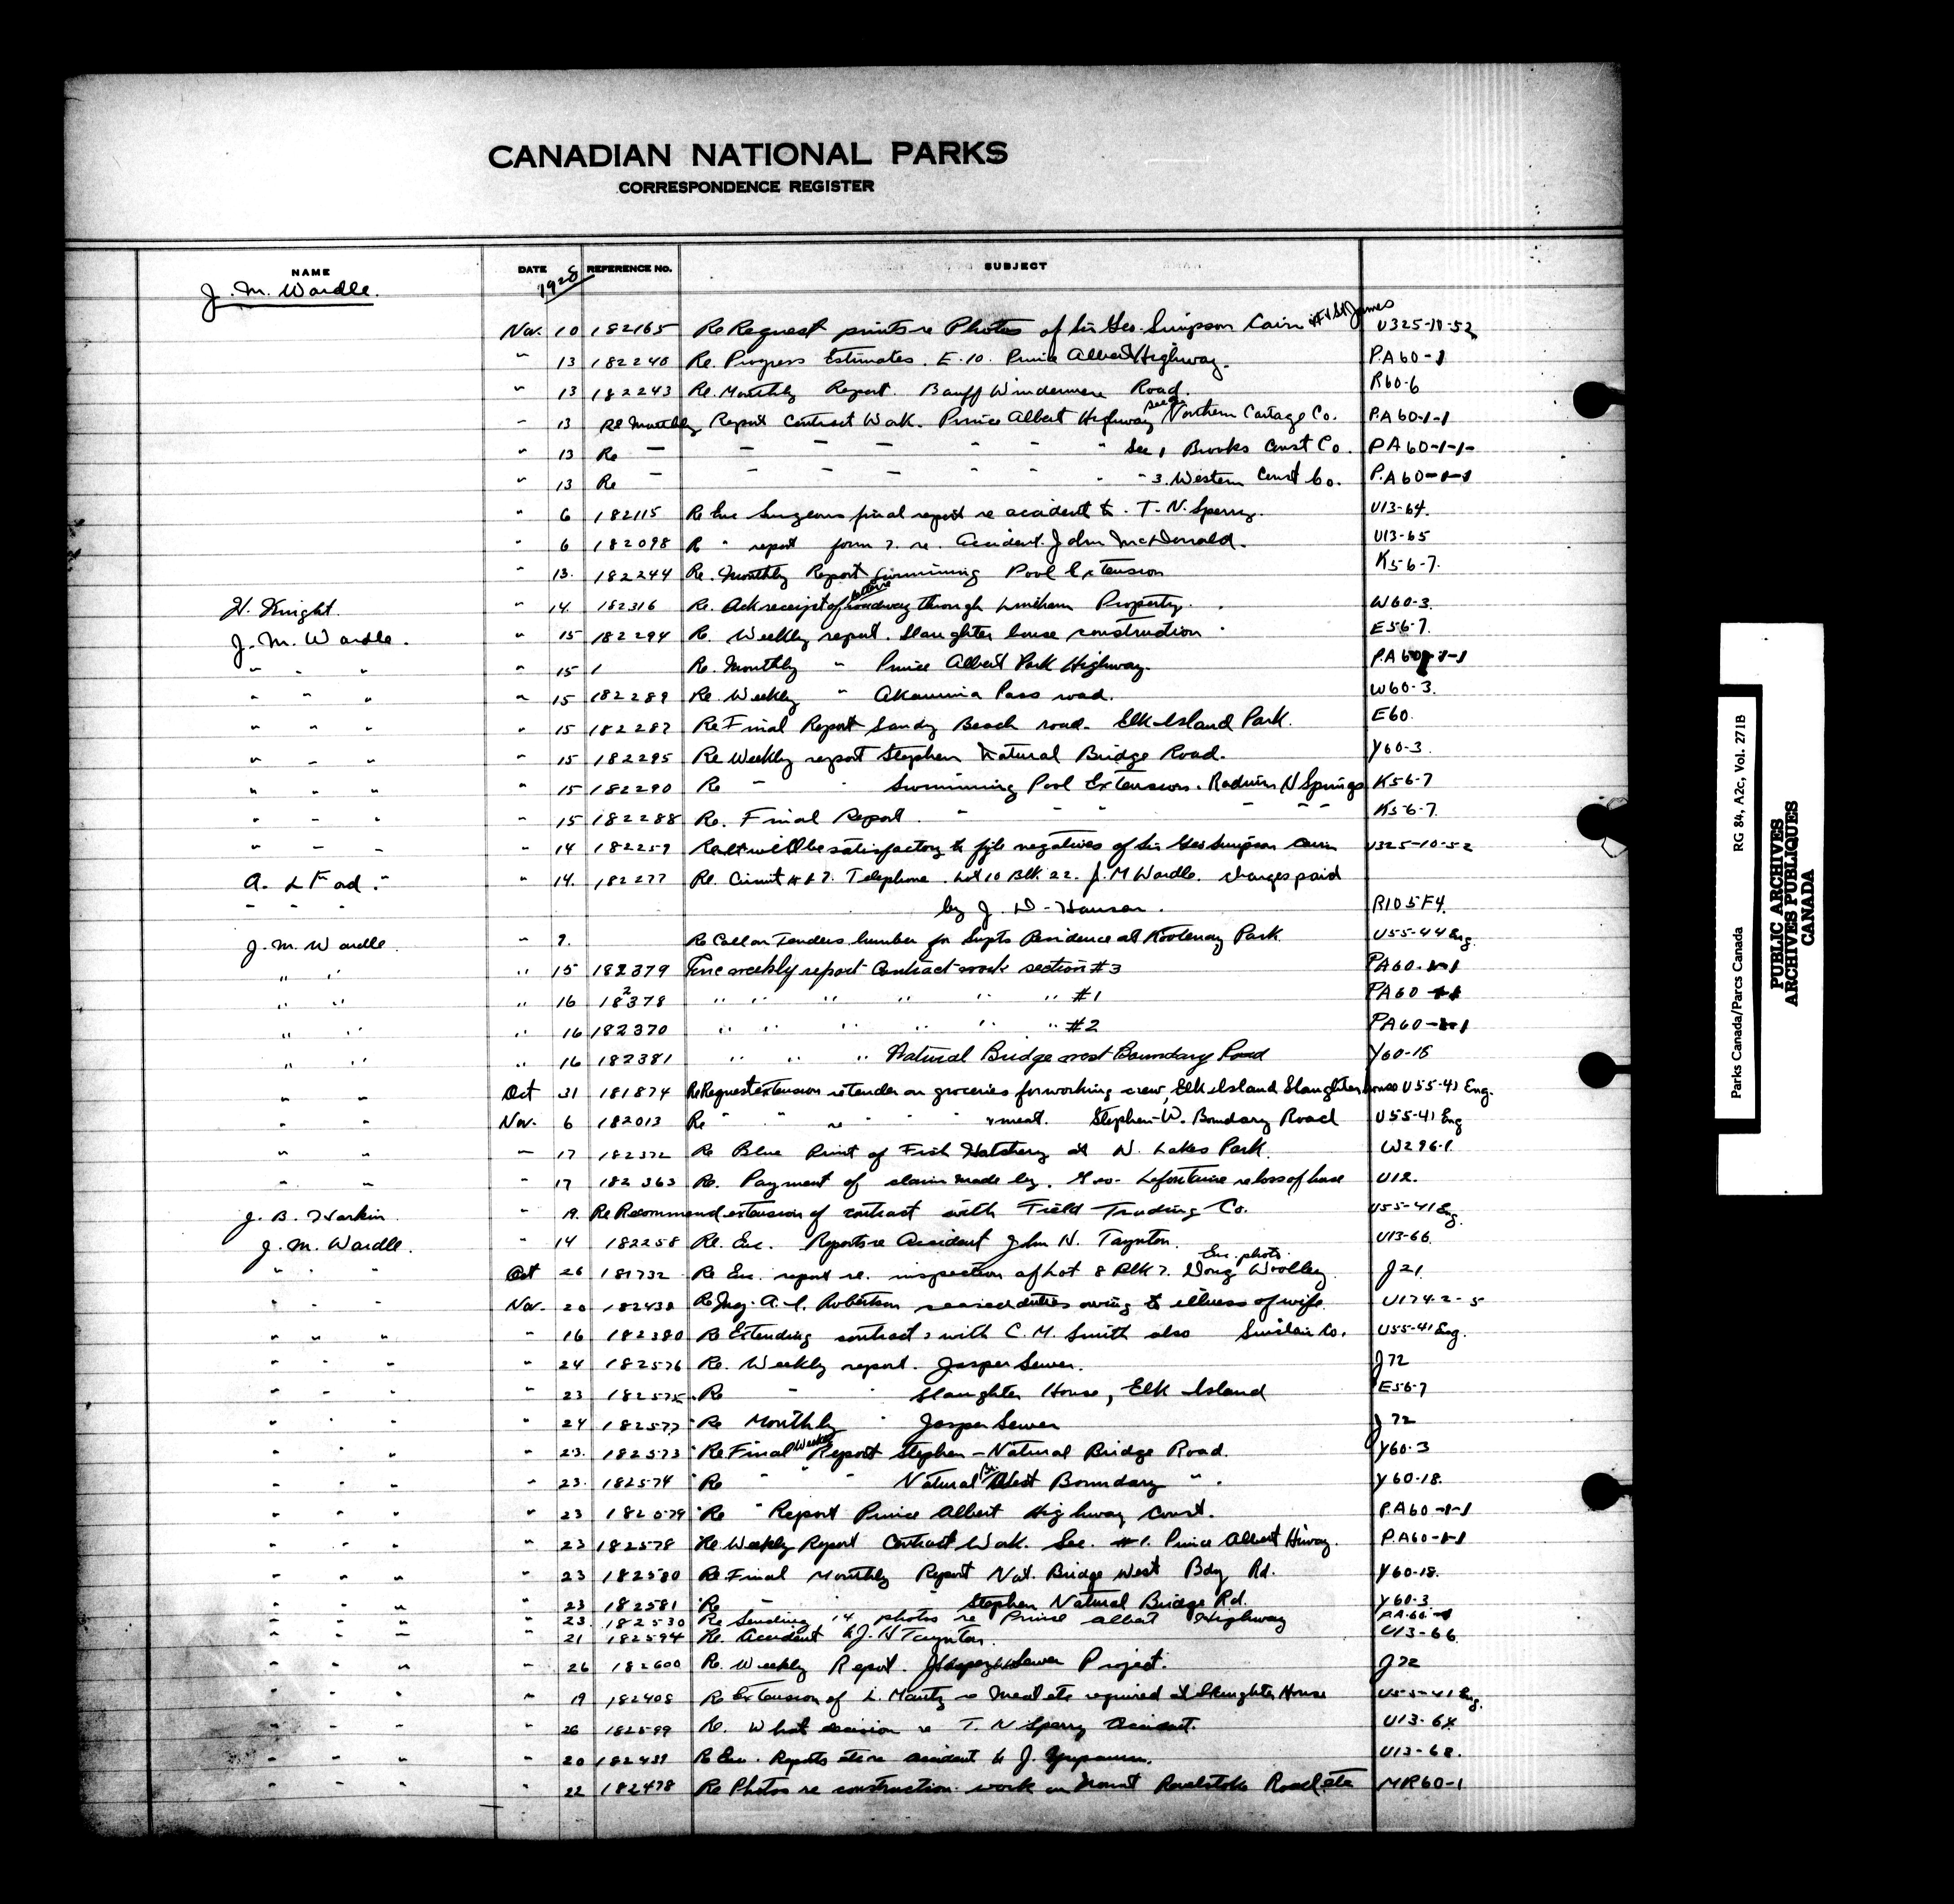 CANADIAN NATIONAL PARKS
CORRESPONDENCE REGISTER
NAME DATE REFERENCE NO. SUBJECT
J. M. Wardle. 1928
Nov. 10 182165 Re Request prints re Photos of Sir Geo. Simpson Cairn at Ft St James U325-10-52
" 13 182240 Re. Progress Estimates. E.10. Prince Albert Highway. P.A60-1
" 13 182243 Re. Monthly Report. Banff Windermere Road. R60-6
" 13 Re Monthly Report Contract Work. Prince Albert Highway sec 2 Northern Cartage Co. P.A60-1-1
" 13 Re " " " " " " " Sec 1 Brooks Const Co. PA60-1-1-
" 13 Re " " " " " " " " 3 Western Const Co. P.A60-1-1
" 6 182115 Re Enc Surgeons final report re accident to. T. N. Sperry. U13-64.
" 6 182098 Re " report form 7. re. Accident. John McDonald. U13-65
" 13. 182244 Re. Monthly Report Swimming Pool Extension K56-7.
H. Knight. " 14. 182316 Re. Ack receipt of roadway through Property. W60-3.
J. M. Wardle. " 15 182294 Re. Weekly report. Slaughter house construction. E56-7.
" " " " 15 1 Re. Monthly " Prince Albert Park Highway. P.A60-1-1
" " " " 15 182289 Re. Weekly " Akamina Pass road. W60-3.
" " " " 15 182287 Re Final Report Sandy Beach road. Elk Island Park. E60.
" " " " 15 182295 Re Weekly report Stephen Natural Bridge Road. Y60-3.
" " " " 15 182290 Re " " Swimming Pool Extension. Radium H Springs K56-7
" " " " 15 182288 Re. Final Report. " " " " " K56-7.
" " " " 14 182259 Re It will be satisfactory to file negatives of Sir Geo Simpson Cairn U325-10-52
" 14. 182277 Re. Circuit # 67. Telephone. Lot 10 Blk. 22. J. M Wardle. charges paid
" " " by J. D. Hanson. R105F4.
J. M. Wardle. " 7. Re Call on Tenders lumber for Supts Residence at Kootenay Park U55-44 Eng.
" " " 15 182379 Enc weekly report Contract work section #3 PA60-1-1
" " " 16 182378 " " " " " " #1 PA60-1-1
" " " 16 182370 " " " " " " #2 PA60-1-1
" " " 16 182381 " " " Natural Bridge west Boundary Road Y60-18
" " Oct 31 181874 Re Request extension re tender on groceries for working crew, Elk Island Slaughter house U55-41 Eng.
" " Nov. 6 182013 Re " " re " " " meat. Stephen-W. Boundary Road U55-41 Eng
" " " 17 182372 Re Blue Print of Fish Hatchery at W. Lakes Park. W296-1
" " " 17 182363 Re. Payment of claim made by. Geo. Lafontaine re loss of horse U12.
J. B. Harkin. " 19. Re Recommend extension of contract with Field Trading Co. U55-41 Eng.
J. M. Wardle. " 14 182258 Re. Enc. Reports re Accident John H. Taynton. U13-66
" " " Oct 26 181732 Re Enc. report re. inspection of Lot 8 Blk 7. Doug Woolley Enc. photo. J21
" " " Nov. 20 182438 Re A. Robertson ceased duties owing to illness of wife U174-2-5
" " " " 16 182380 Re Extending contracts with C. M. Smith also Sinclair Co. U55-41 Eng.
" " " " 24 182576 Re. Weekly report. Jasper Sewer. J72
" " " " 23 182575 Re " " Slaughter House, Elk Island E56-7
" " " " 24 182577 Re Monthly " Jasper Sewer J72
" " " " 23. 182573 Re Final Weekly Report Stephen-Natural Bridge Road. Y60-3
" " " " 23. 182574 Re " " " Natural Br. West Boundary ". Y60-18.
" " " " 23 182579 Re " Report Prince Albert Highway Const. P.A60-1-1
" " " " 23 182578 Re Weekly Report Contract Work. Sec. #1. Prince Albert Hiway. P.A60-1-1
" " " " 23 182580 Re Final Monthly Report Nat. Bridge West Bdy Rd. Y60-18.
" " " " 23 182581 Re " " Stephen Natural Bridge Rd. Y60-3
" " " " 23. 182530 Re Sending 14 photos re Prince Albert Highway PA-66-1
" " " " 21 182594 Re. Accident to J. H Taynton. U13-66
" " " " 26 182600 Re. Weekly Report. Jasper Sewer Project. J72
" " " " 19 182408 Re Extension of L. Mantz re Meat etc required at Slaughter House U55-41 Eng.
" " " " 26 182599 Re. What decision re T. N Sperry Accident. U13-64
" " " " 20 182439 Re Enc. Reports accident to J. U13-68.
" " " " 22 182478 Re Photos re construction work on Mount Revelstoke Road etc MR60-1
Parks Canada/Parcs Canada RG 84, A2c, Vol. 271B
PUBLIC ARCHIVES
ARCHIVES PUBLIQUES
CANADA